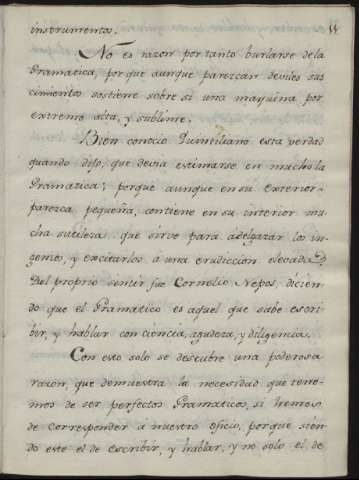 instrumentos.
No es razon por tanto burlarse de la
Gramatica, porque aunque parezcan deviles sus
cimientos sostiene sobre si una maquina por
extremo alta, y sublime.
Bien conocio Quintiliano esta verdad
quando dijo, que devia estimarse en mucho la
Gramatica; porque aunque en su exterior
parezca pequeña, contiene en su interior mu
cha sutileza que sirve para adelgazar los in
genios, y excitarlos á una erudicción elevada
Del proprio sentir fue Cornelio Nepos, dicien
do que el Gramatico es aquel que sabe escri
bir, y hablar con ciencia, agudeza, y diligencia.
Con esto solo se descubre una poderosa
razon, que demuestra la necesidad que tene
mos de ser perfectos Gramaticos, si hemos
de corresponder á nuestro oficio, porque sien
do este el de escribir, y hablar, y no solo el de